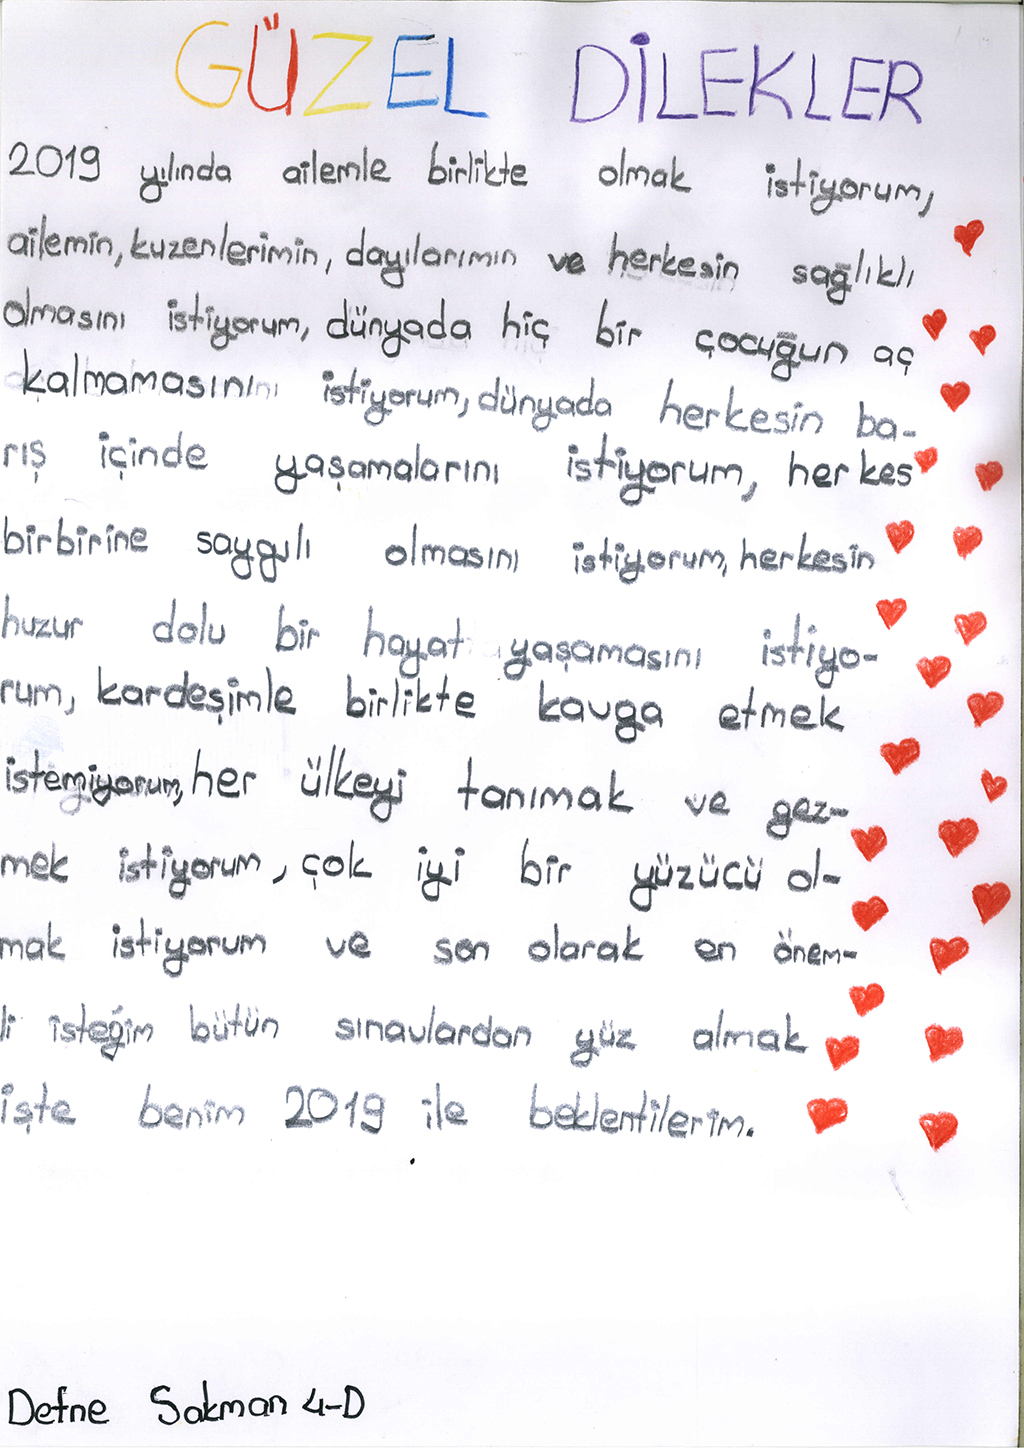 GÜZEL DİLEKLER
2019 yılında ailemle birlikte olmak istiyorum,
ailemin, kuzenlerimin, dayılarımın ve herkesin sağlıklı
olmasını istiyorum, dünyada hiç bir çocuğun aç
kalmamasının istiyorum, dünyada herkesin ba-
rış içinde yaşamalarını istiyorum, herkes
birbirine saygılı olmasını istiyorum, herkesin
huzur dolu bir hayat yaşamasını istiyo-
rum, kardeşimle birlikte kavga etmek
istemiyorum, her ülkeyi tanımak ve gez-
mek istiyorum, çok iyi bir yüzücü ol-
mak istiyorum ve son olarak en önem-
li isteğim bütün sınavlardan yüz almak
işte benim 2019 ile beklentilerim.
Defne Sakman 4-D